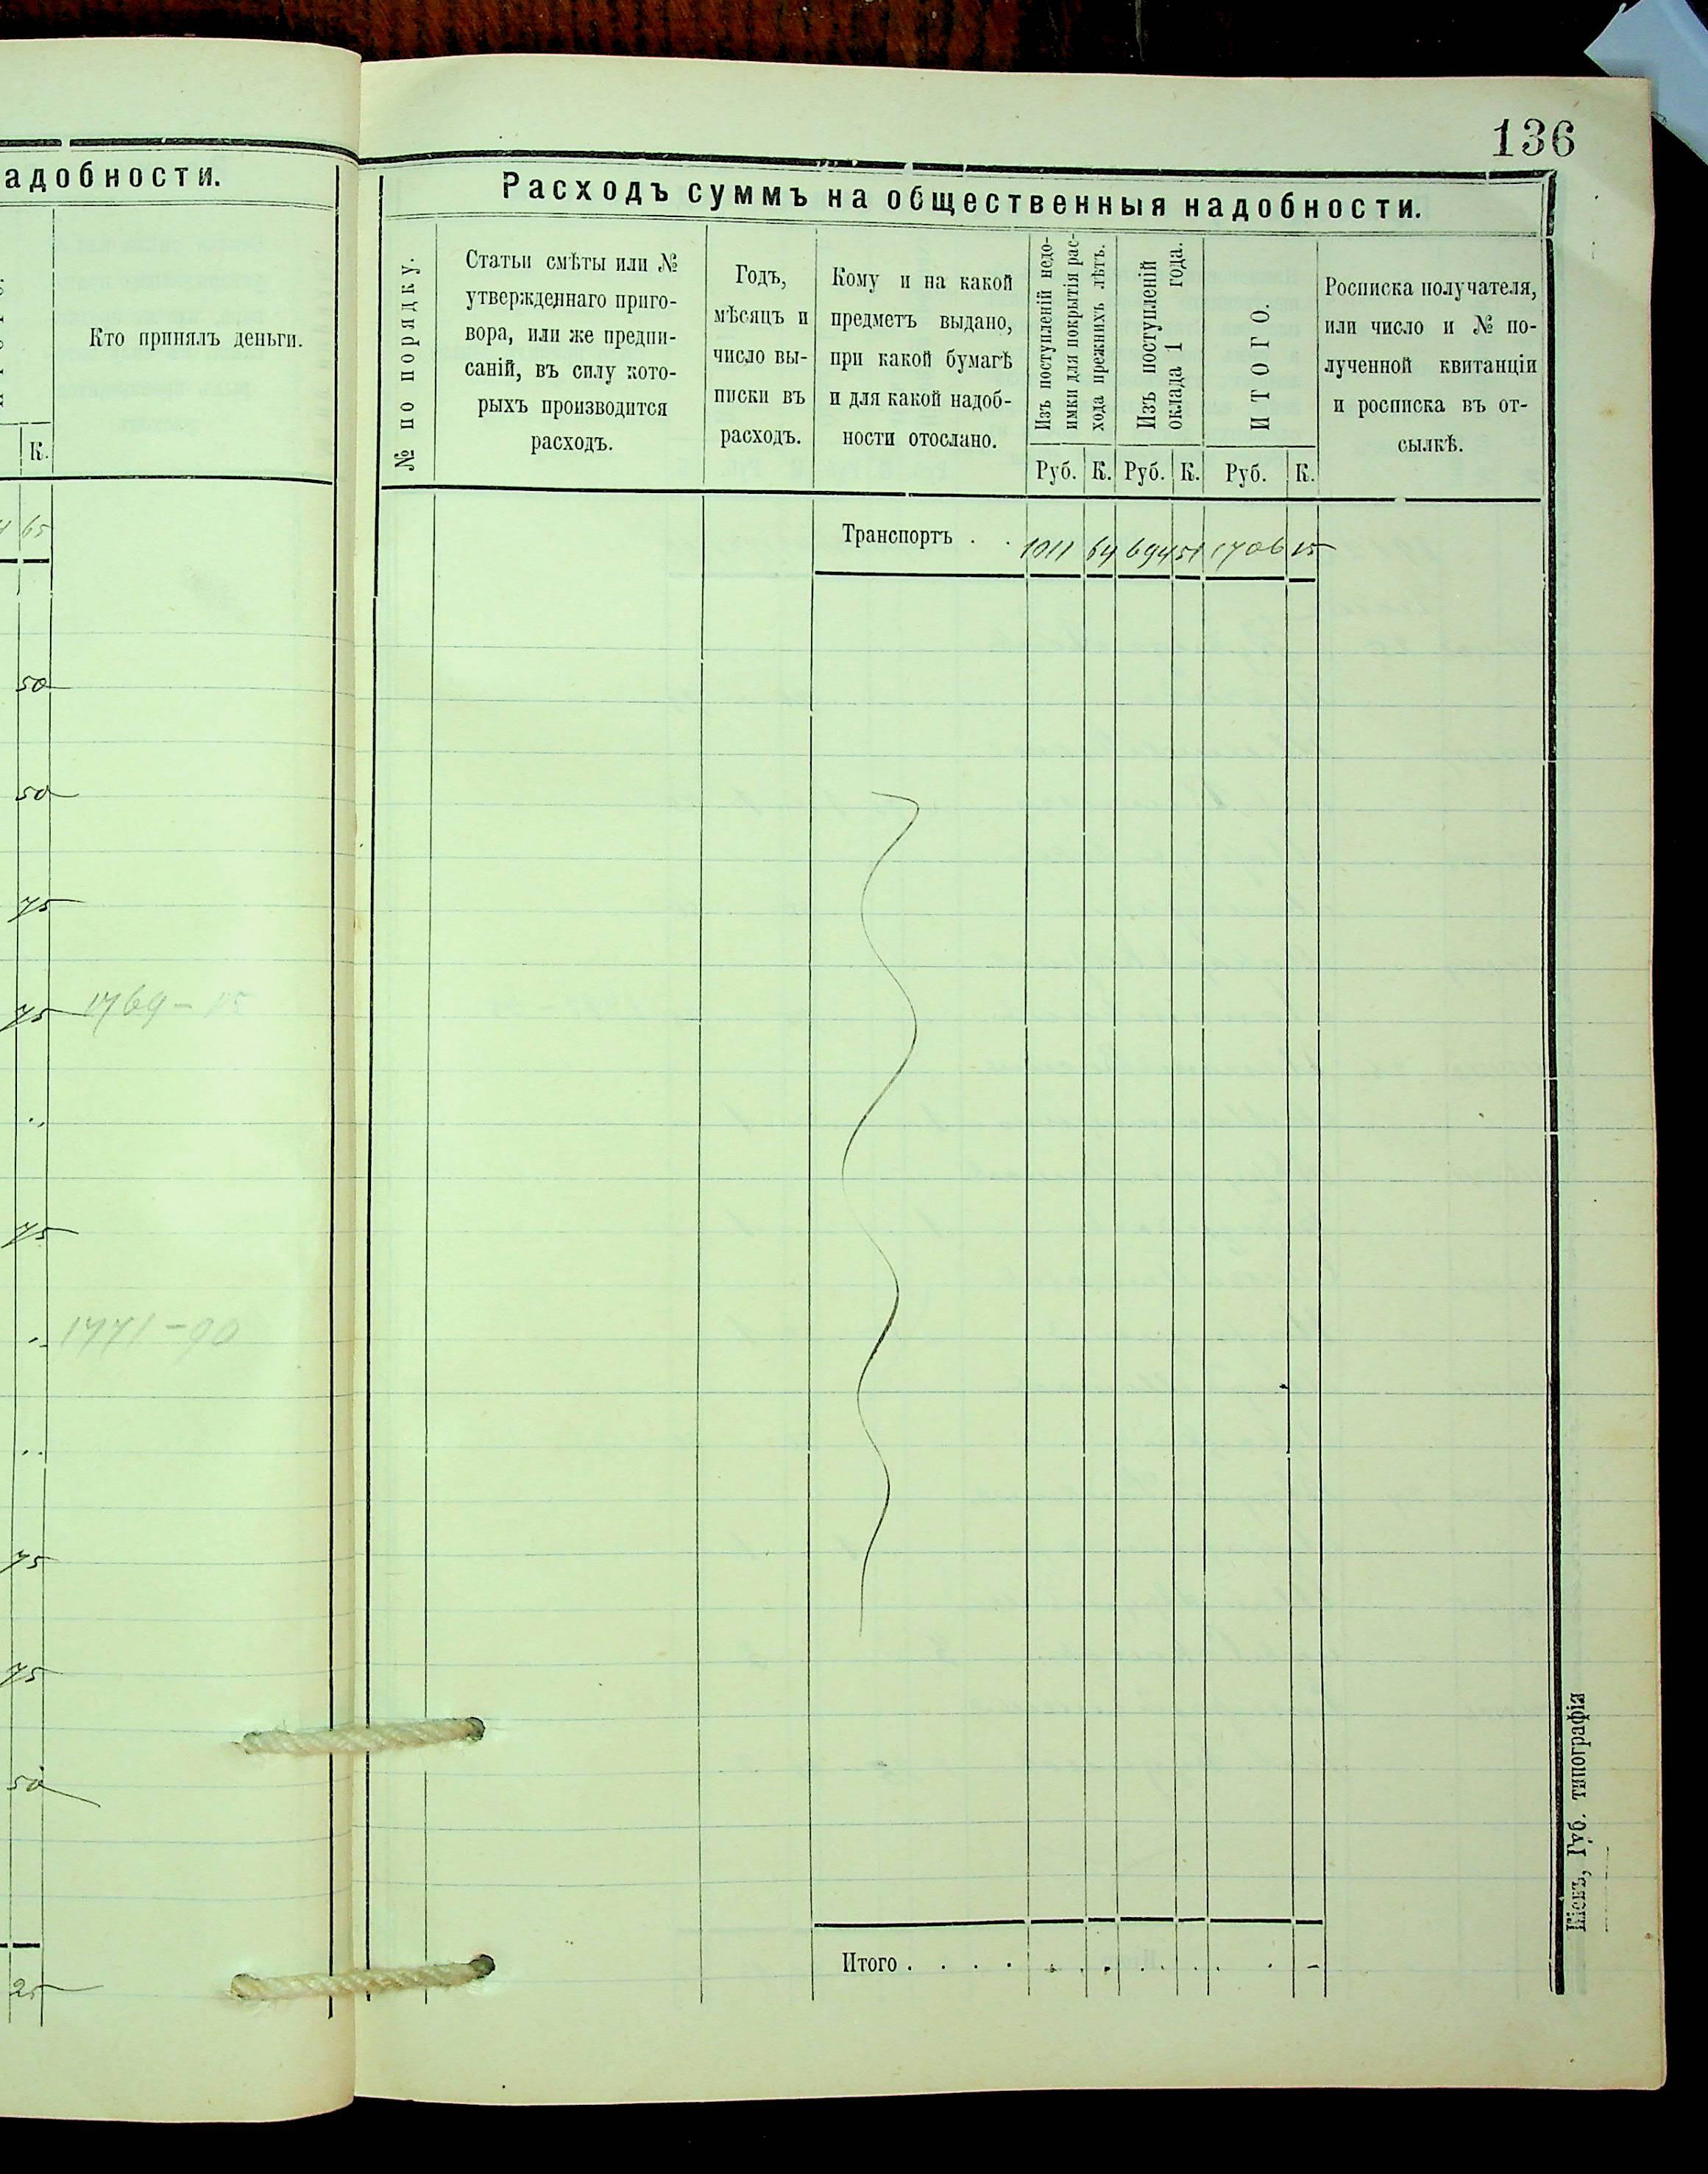 136
адобности.
К.
Кто принялъ деньги.
65
50
50
75
75 1769-15
75
1771-90
75
75
50
25
Расходъ суммъ на общественныя надобности.
№ по порядку.
Статьи смѣты или №
утвержденнаго приго-
вора, или же предпи-
саній, въ силу кото-
рыхъ производится
расходъ.
Годъ,
мѣсяцъ и
число вы-
писки въ
расходъ.
Кому и на какой
предметъ выдано,
при какой бумагѣ
и для какой надоб-
ности отослано.
Изъ поступленій недо-
имки для покрытія рас-
хода прежнихъ лѣтъ.
Изъ поступленій
оклада 1 года.
ИТОГО.
Росписка получателя,
или число и № по-
лученной квитанціи
и росписка въ от-
сылкѣ.
Руб. К. Руб. К. Руб. К.
Транспортъ . . 1011 64 694 51 1706 15
Итого . . . .
Кіевъ, Губ. типографія